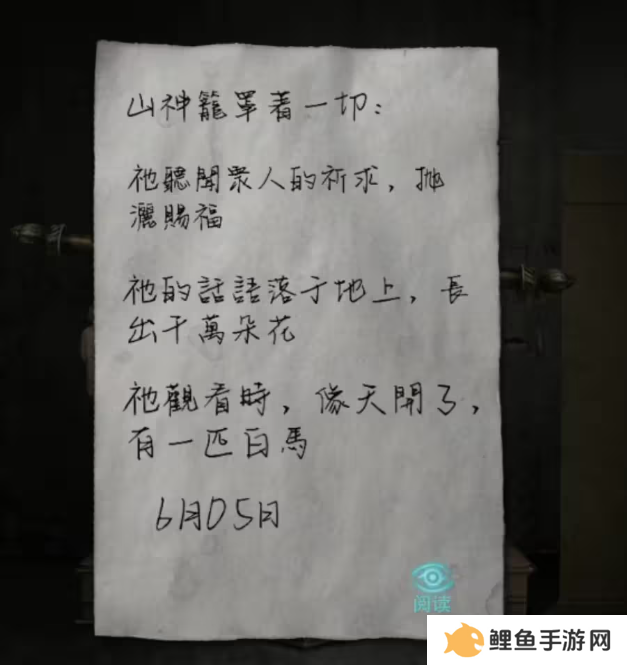 山神籠罩着一切：
祂聽聞眾人的祈求，拋
灑賜福
祂的話語落于地上，長
出千萬朵花
祂觀看時，像天開了，
有一匹白馬
6月05日
阅读
鲤鱼手游网